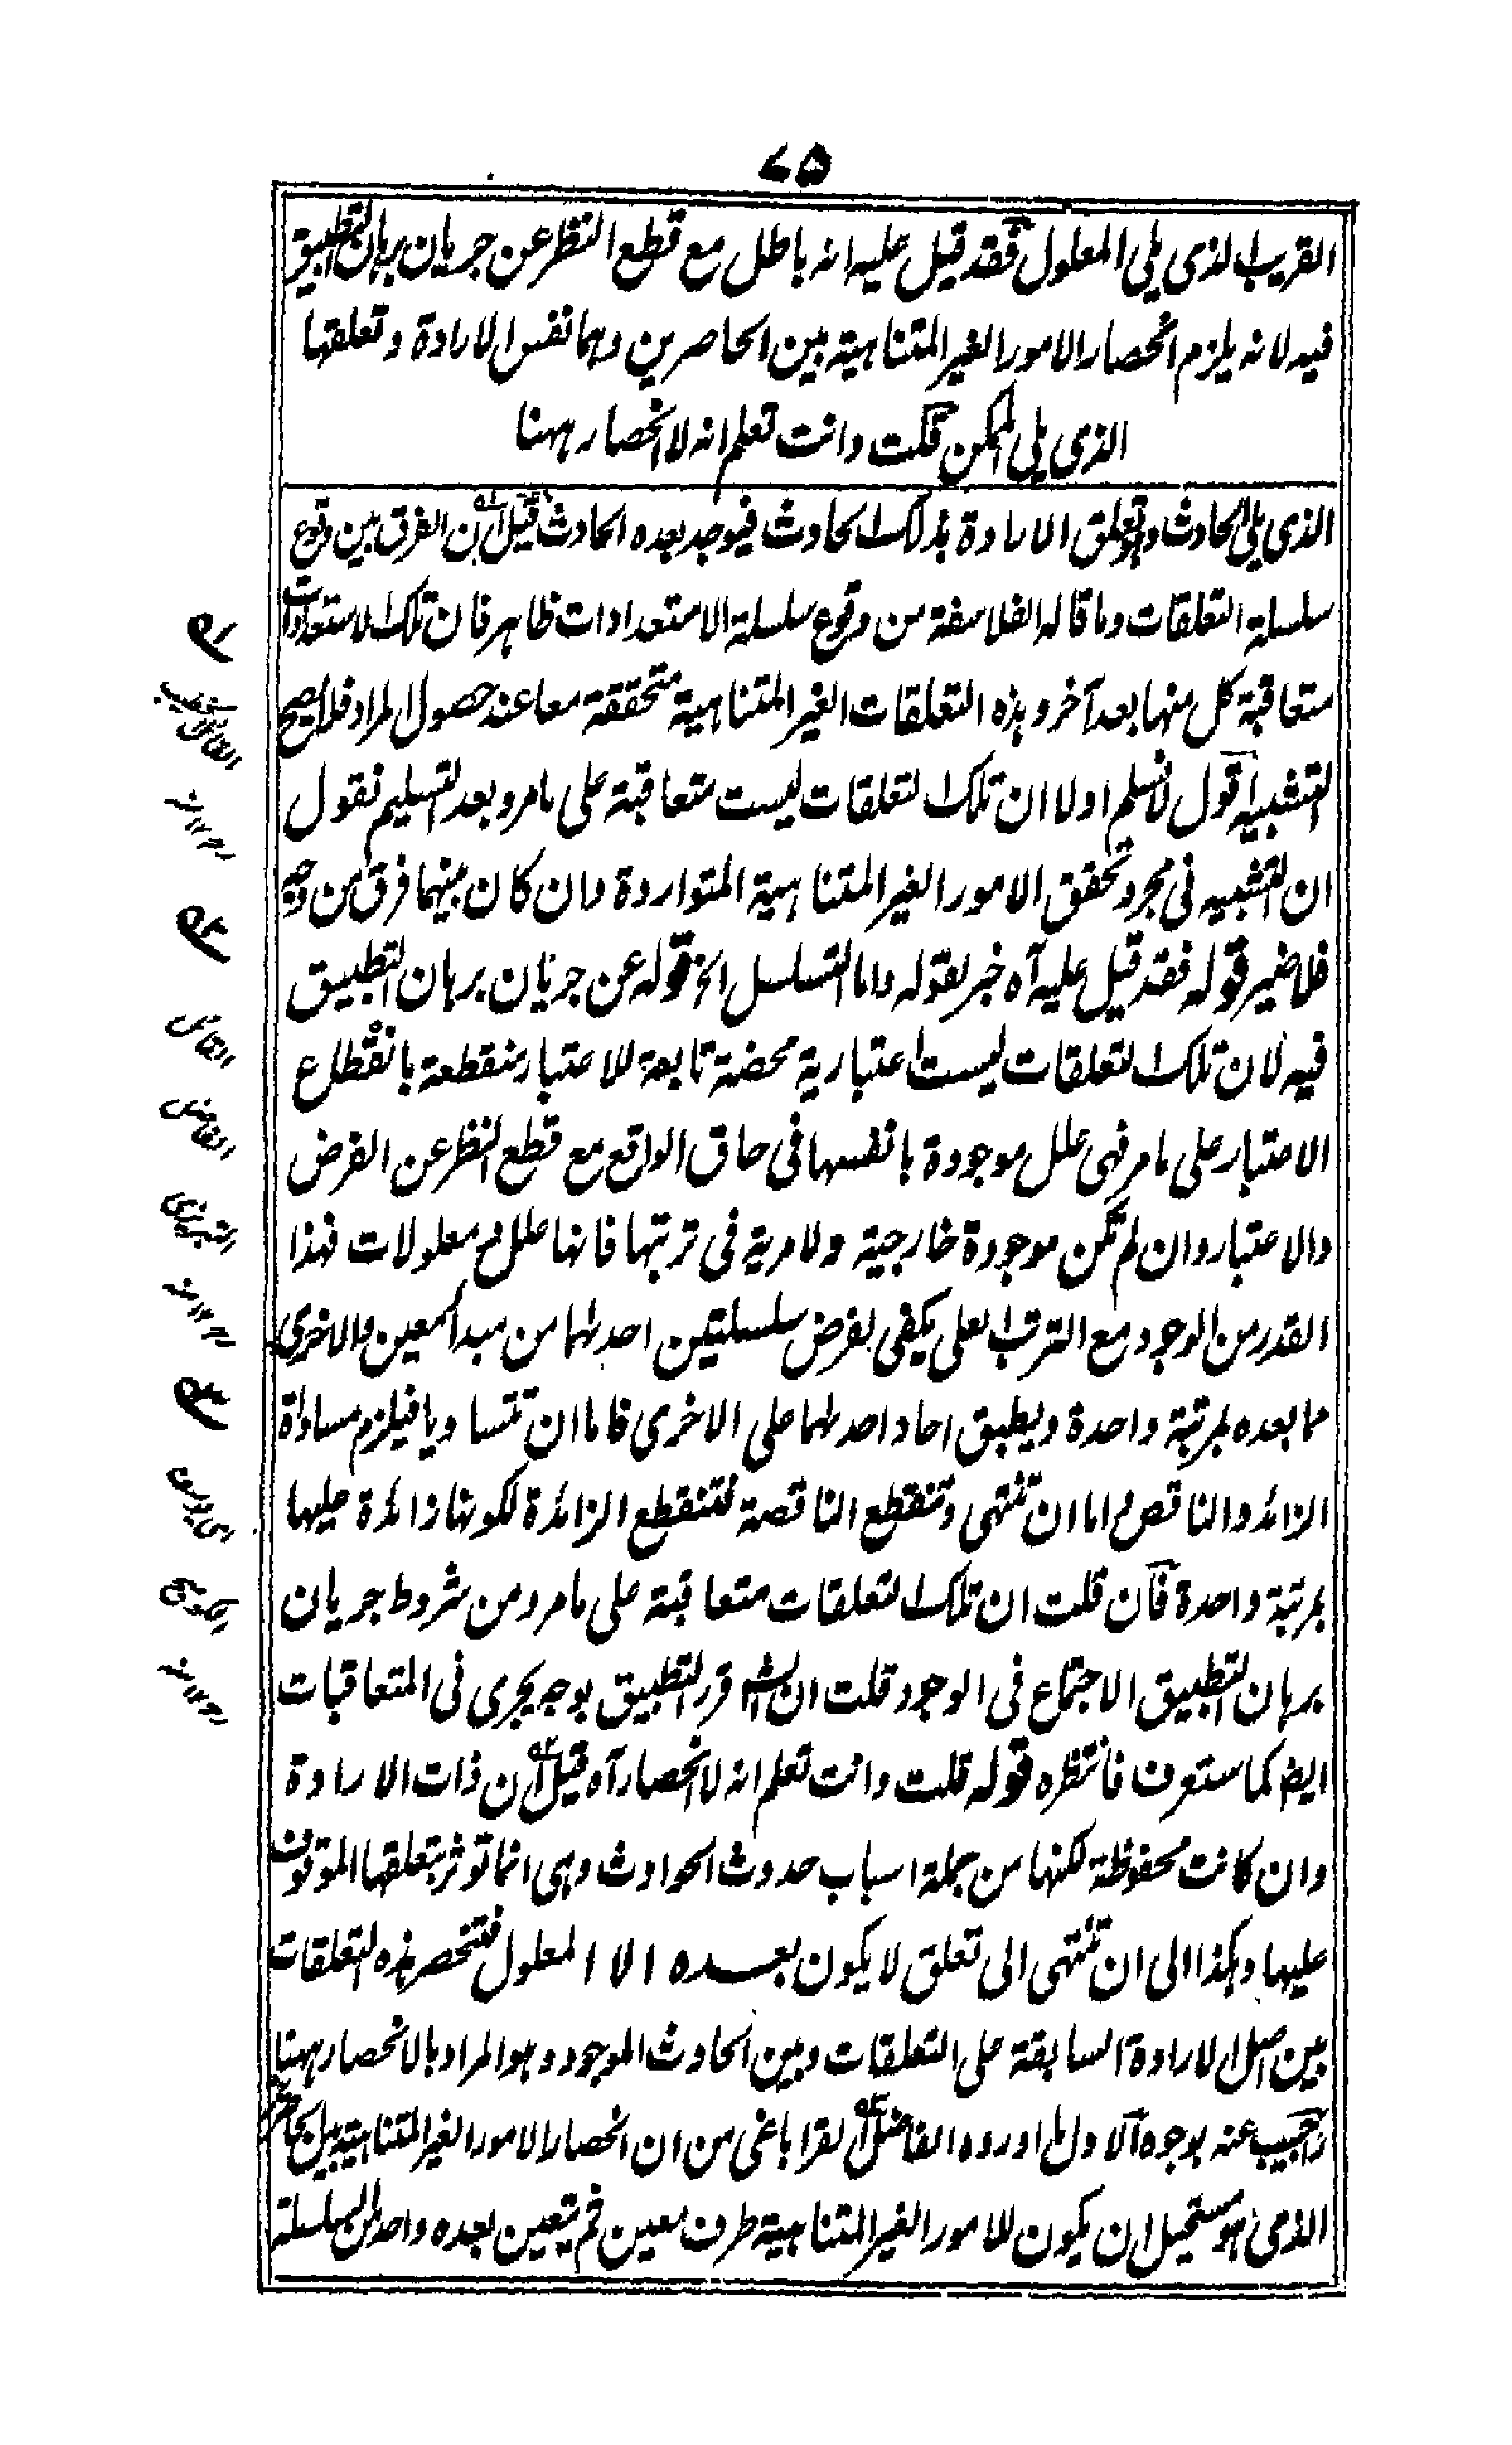 ۷۵
القريب الذى يلى المعلول فقد قيل عليه انه باطل مع قطع النظر عن جريان برهان التطبيق
فيه لانه يلزم انحصار الامور الغير المتناهية بين الحاصرين وهما نفس الارادة وتعلقها
الذى يلى الممكن قلت وانت تعلم انه لا انحصار ههنا
الذى يلى الحادث وهو تعلق الارادة بذلك الحادث فيوجد بعده الحادث قيل ان الفرق بين وقوع
سلسلة التعلقات وما قاله الفلاسفة من وقوع سلسلة الاستعدادات ظاهر فان تلك الاستعدادات
متعاقبة كل منها بعد آخر وهذه التعلقات الغير المتناهية متحققة معا عند حصول المراد فلا يصح
التشبيه اقول لا نسلم اولا ان تلك التعلقات ليست متعاقبة على ما مر وبعد التسليم نقول
ان التشبيه فى مجرد تحقق الامور الغير المتناهية المتواردة وان كان بينهما فرق من وجه
فلا ضير قوله فقد قيل عليه آه خبر لقوله واما التسلسل الخ قوله عن جريان برهان التطبيق
فيه لان تلك التعلقات ليست اعتبارية محضة تابعة للاعتبار منقطعة بانقطاع
الاعتبار على ما مر فهى علل موجودة بانفسها فى حاق الواقع مع قطع النظر عن الفرض
والاعتبار وان لم تكن موجودة خارجية ولا مرية فى ترتبها فانها علل و معلولات فهذا
القدر من الوجود مع الترتب العلى يكفى لفرض سلسلتين احدىهما من مبدأ معين والاخرى
مما بعده بمرتبة واحدة ويطبق احاد احدىهما على الاخرى فاما ان تتساويا فيلزم مساواة
الزائد والناقص او اما ان تنتهى وتنقطع الناقصة فتنقطع الزائدة لكونها زائدة عليها
بمرتبة واحدة فان قلت ان تلك التعلقات متعاقبة على ما مر ومن شروط جريان
برهان التطبيق الاجتماع فى الوجود قلت ان الش قرر التطبيق بوجه يجرى فى المتعاقبات
ايضا كما ستعرف فانتظره قوله قلت وانت تعلم انه لا انحصار آه قيل ان ذات الارادة
وان كانت محفوظة لكنها من جملة اسباب حدوث الحوادث وهى انما توثر بتعلقها الموقوف
عليها وهكذا الى ان تنتهى الى تعلق لا يكون بعده الا المعلول فتنحصر هذه التعلقات
بين اصل الارادة السابقة على التعلقات وبين الحادث الموجود وهو المراد بالانحصار ههنا
واجيب عنه بوجوه الاول ما اورده الفاضل القراباغى من ان انحصار الامور الغير المتناهية بين الحاصرين
الذى هو مستحيل ان يكون للامور الغير المتناهية طرف معين ثم يتعين بعده واحد من السلسلة